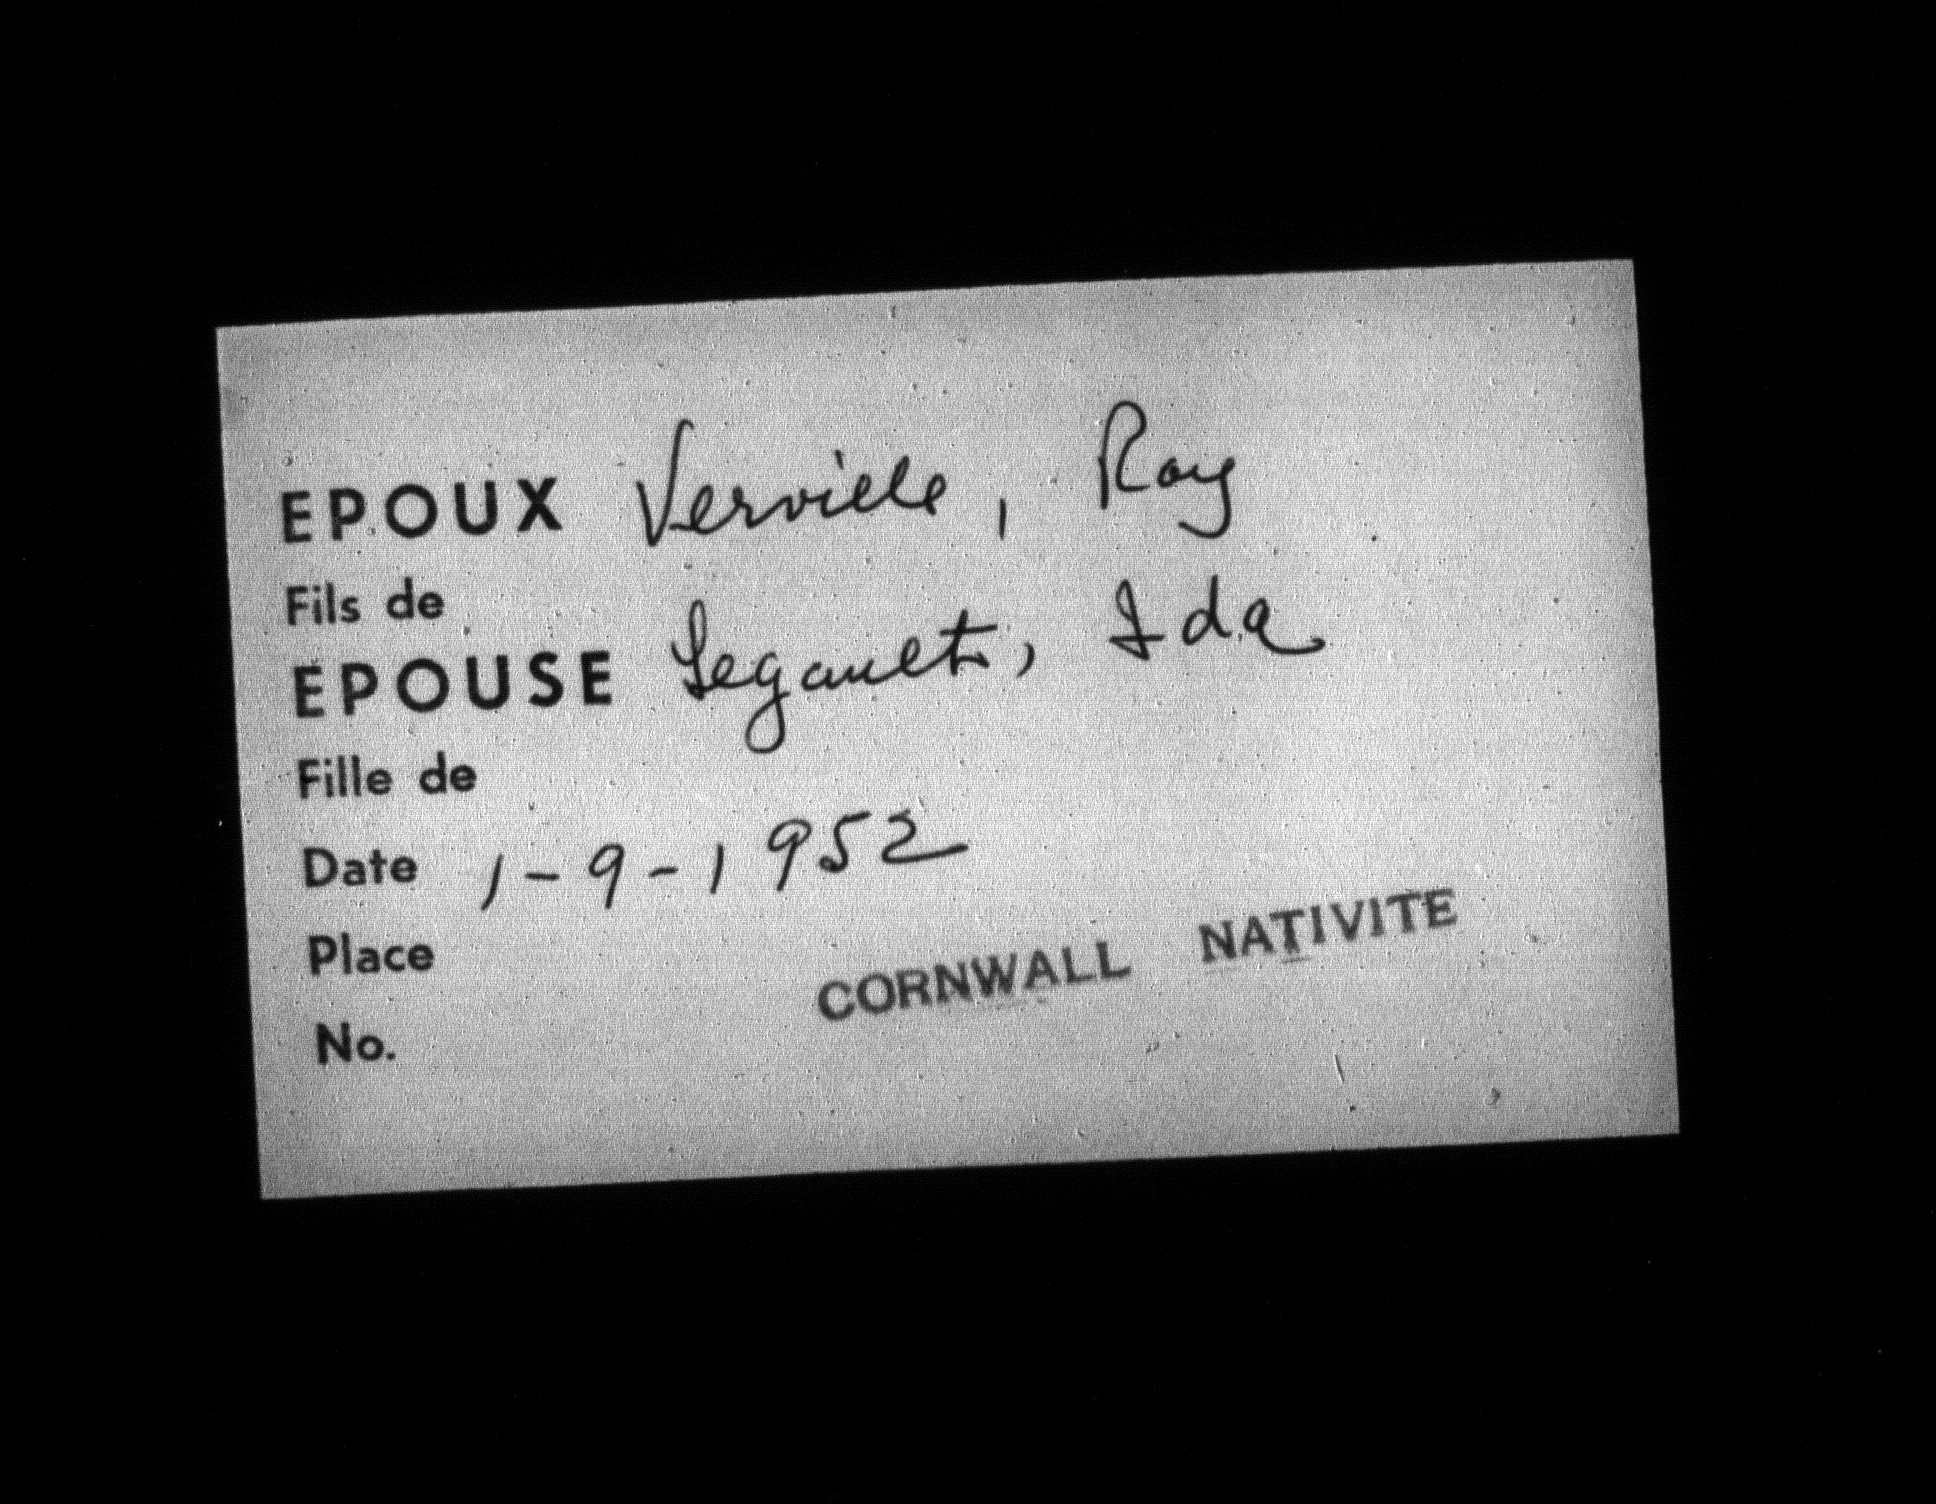 EPOUX Verville, Roy
Fils de
EPOUSE Legault, Ida
Fille de
Date 1-9-1952
Place CORNWALL NATIVITE
No.